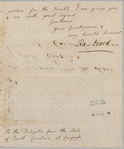 pardon for the trouble I am giving you
& am with great regard
Gentlemen
Your
very humble Servant
To the Delegates from the State
of South Carolina at Congress